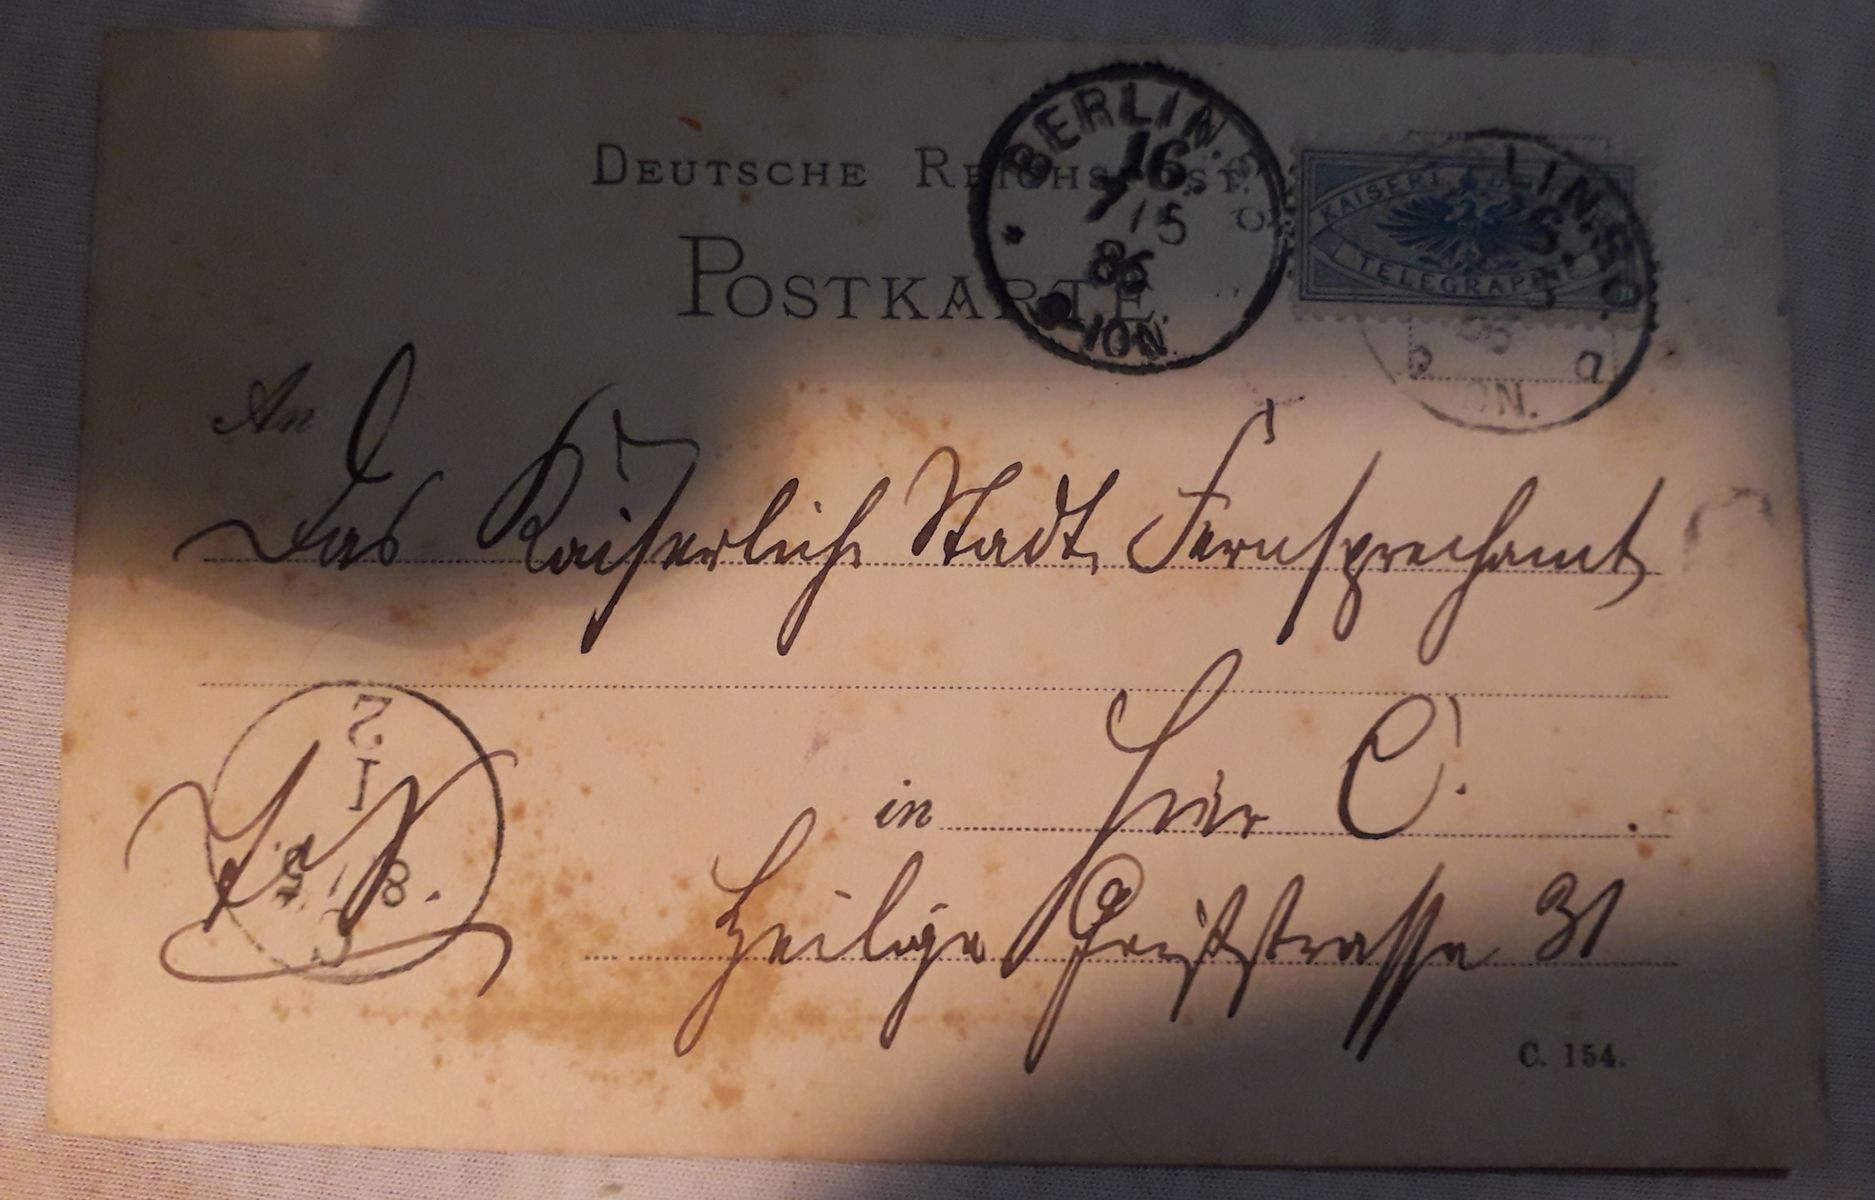 DEUTSCHE REICHSPOST.
POSTKARTE.
BERLIN. S.O.
16
7/5
86
9-10N.
KAISERL.
TELEGRAPHIE
LIN. S.O.
a
ON.
An
Das Kaiserliche Stadt Fernsprechamt
Z
I
8.
in Hier C.
Heilige Geiststrasse 31
C. 154.